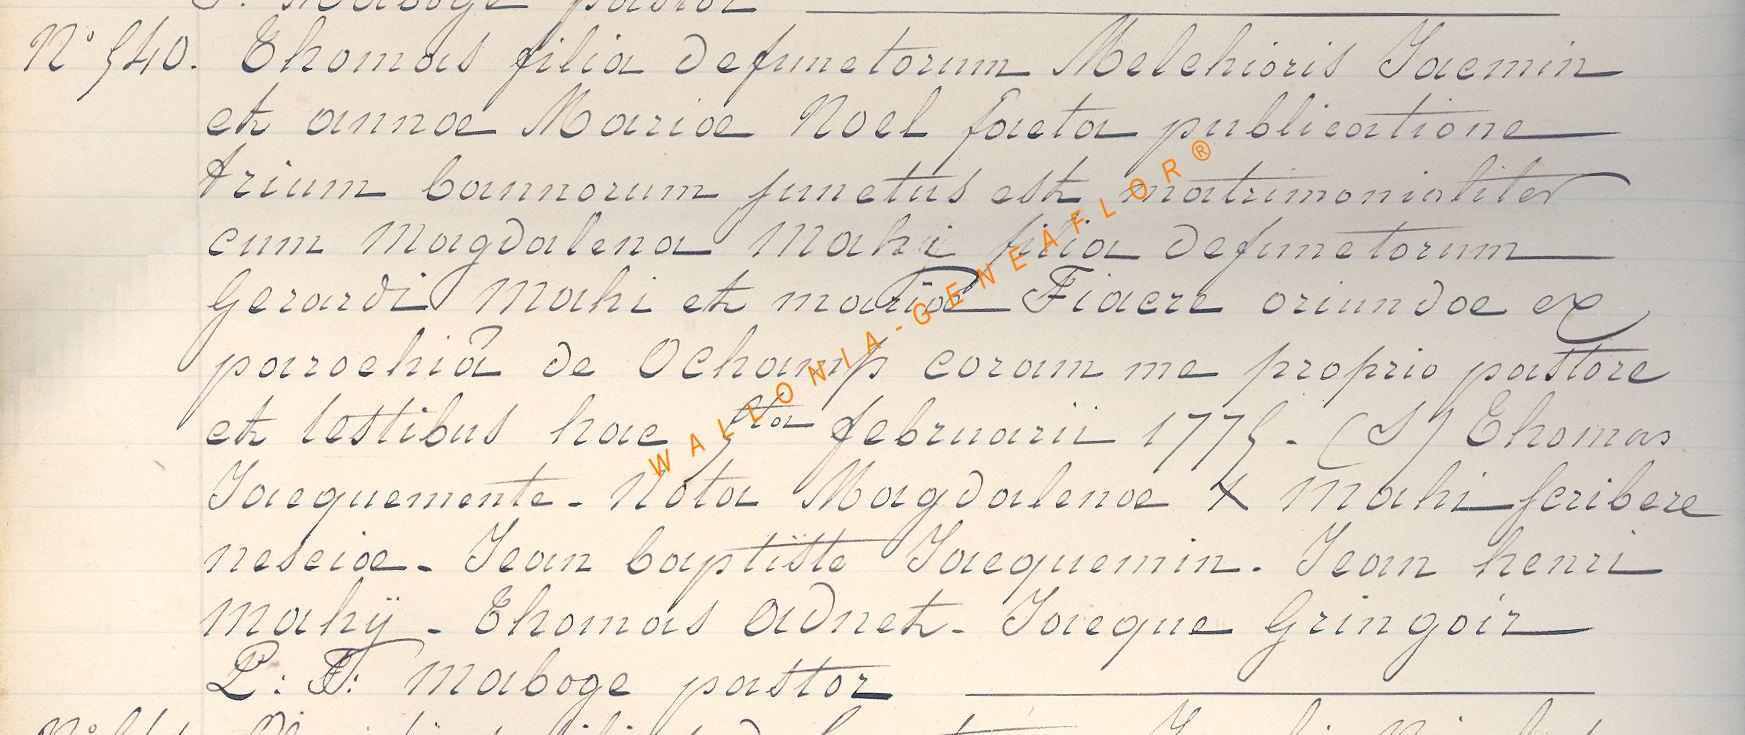 N° 540. Thomas filia defunctorum Melchioris Jacmin
et annæ Mariæ Noel facta publicatione
trium bannorum junctus est matrimonialiter
cum Magdalena Mahi filia defunctorum
Gerardi Mahi et mariæ Fiacre oriundæ ex
parochiâ de Ochamp coram me proprio pastore
et testibus hac 5ta februarii 1775. (S) Thomas
Jacquemente. Nota Magdalenæ X Mahi scribere
nesciæ. Jean baptiste Jacquemin. Jean henri
Mahÿ. Thomas Adnet. Jacque Gringoir
P: F: Maboge pastor
WALLONIA-GENEAFLOR®